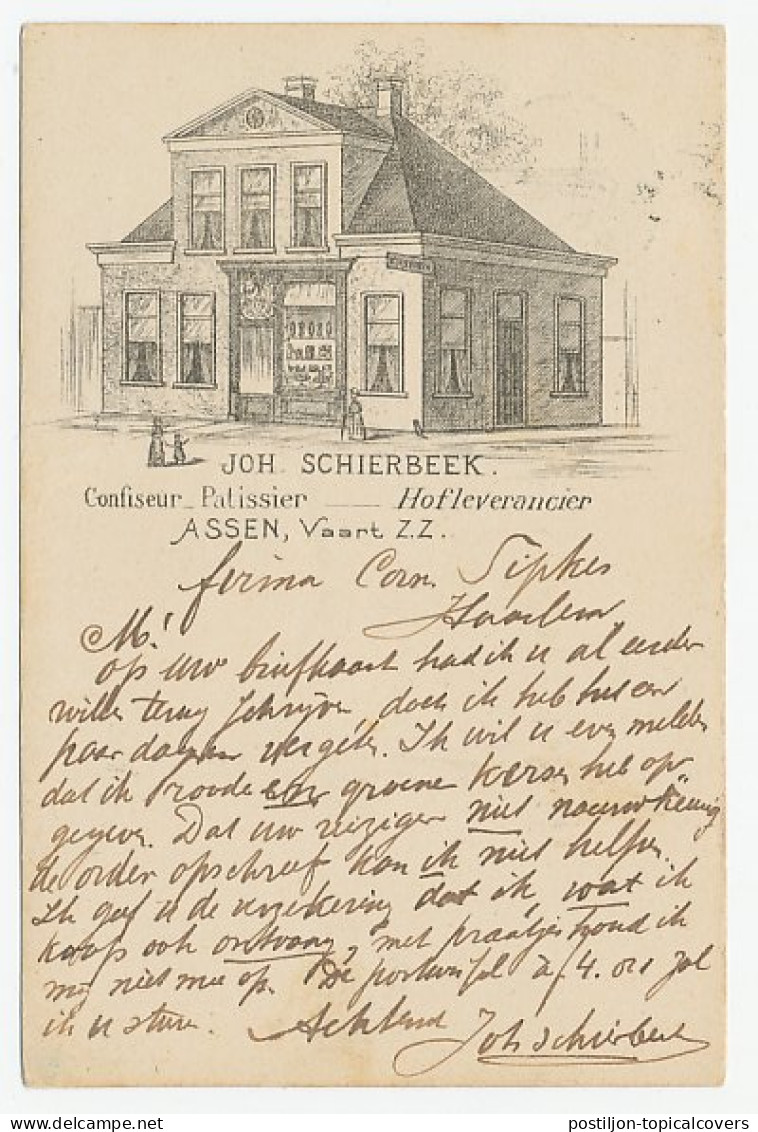 JOH. SCHIERBEEK.
Confiseur_Patissier ___ Hofleverancier
ASSEN, Vaart Z.Z.
firma Corn. Sipkes
Haarlem
M.!
op uw briefkaart had ik u al eerder
willen terug schrijven, doch ik heb het een
paar dagen vergeten. Ik wil u even melden
dat ik roode en groene kersen heb op
gegeven. Dat uw reiziger niet nauwkeurig
de order opschreef kan ik niet helpen.
Ik geef u de verzekering dat ik, wat ik
koop ook ontvang, met praatjes houd ik
mij niet mee op. De postwissel à f 4. zal
ik u sturen. Achtend
Joh Schierbeek
HipPostcard.com
postiljon-topicalcovers